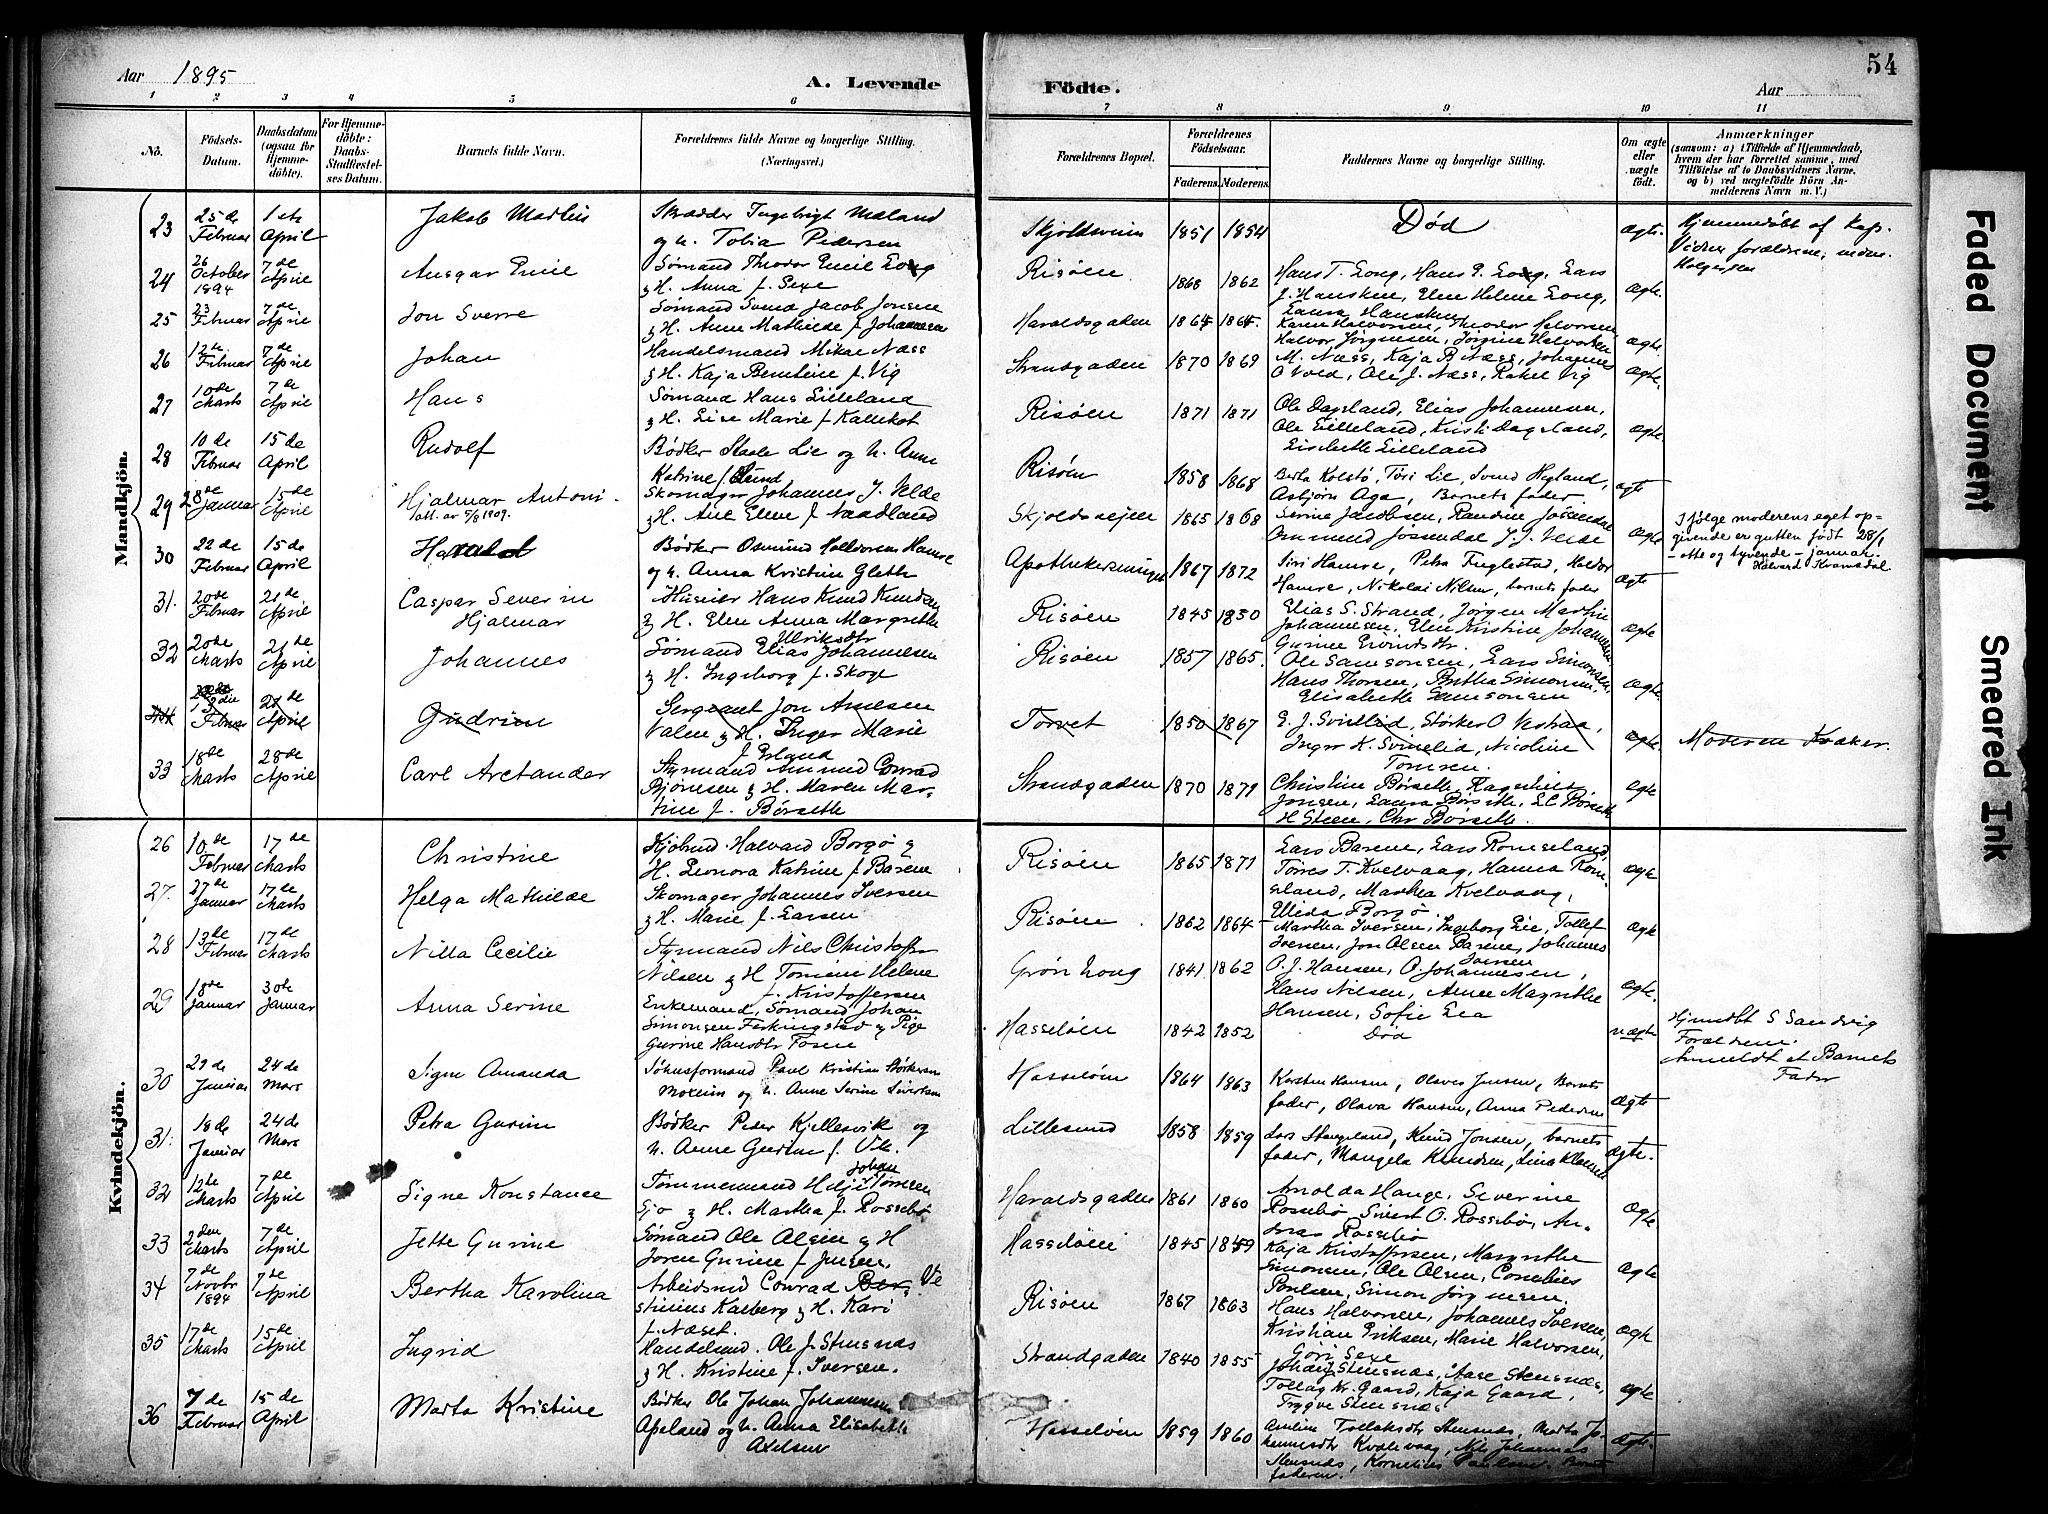 54
Aar 1895
A. Levende
Födte.
Aar
1 2 3 4 5 6 7 8 9 10 11
No.
Födsels-
Datum.
Daabsdatum
(ogsaa for
Hjemme-
döbte).
For Hjemme-
döbte:
Daabs-
Stadfæstel-
ses Datum.
Barnets fulde Navn.
Forældrenes fulde Navne og borgerlige Stilling.
(Næringsvei.)
Forældrenes Bopæl.
Forældrenes
Födselsaar.
Faderens. Moderens.
Faddernes Navne og borgerlige Stilling.
Om ægte
eller
uægte
födt.
Anmærkninger
(saasom: a) i Tilfælde af Hjemmedaab,
hvem der har forrettet samme, med
Tilföielse af to Daabsvidners Navne,
og b) ved uægtefödte Börn An-
melderens Navn m. V.)
Mandkjön.
23 25 de Februar 1ste April Jakob Mathis
Skrædder Ingebrigt Mæland
og h. Tobia Pedersen
Skjoldsveien 1851 1854 Död ægte.
Hjemmedöbt af
Vidner forældrene
24 26 October 1894 7de April Ansgar Emil
Sömand Theodor Emil Long
& H. Anna f. Sexe
Risöen 1868 1862
Hans T. Long, Hans P. Long, Lars
J. Hansken, Elen Helene Long,
Laura Hansken
ægte.
25 23 Februar 7de April Jon Sverre
Sömand Svend Jacob Jonsen
& H. Anne Mathilde f. Johannesen
Haraldsgaden 1864 1864.
Karen Halvorsen, Theodor Halvorsen
Halvor Jörgensen, Jörgine Halvorsen
ægte.
26 12te Februar 7de April Johan
Handelsmand Mikal Næss
& H. Kaja Berntine f. Vig
Strandgaden 1870 1869
M. Næss, Kaja B Næss, Johannes
O Vold, Ole J. Næss, Rakel Vig
ægte.
27 10de Marts 7de April Hans
Sömand Hans Lilleland
& H. Lise Marie f. Kallekot
Risöen 1871 1871
Ole Dagsland, Elias Johannesen,
Ole Lilleland, Kristi Dagsland,
Lisebeth Lilleland
ægte.
28 10 de Februar 15 de April Rudolf
Bödker Staale Lie og h. Anne
Katrine f. Lund
Risöen 1858 1868
Berta Kolstö, Töri Lie, Svend Hegland,
Asbjörn Aga, Barnets fader
ægte
29 28de Januar 15de April Hjalmar Antoni.
att. av 5/8 1909.
Skomager Johannes J. Velde
& H. Ane Elene f. Naadland
Skjoldsveien 1865 1868
Serine Jacobsen, Randine Jösendal
Ommund Jösendal J. J. Velde
ægte
Ifølge moderens eget op-
givende er gutten født 28/1
- otte og tyvende - januar.
Halvard Kramsdal
30 22 de Februar 15 de April Harald
Bödker Osmund Halvorsen Hamre
og h. Anna Kristine Gleth
Apothekersmuget 1867 1872
Siri Hamre, Petra Fuglestad, Haldor
Hamre, Nikolai Nilsen, barnets fader
ægte
31. 20de Februar 21de April Caspar Severin
Hjalmar
Huseier Hans Knud Knudsen
& H. Elen Anna Margrethe
Ulriksdtr
Risöen 1845 1850
Elias S. Strand, Jörgen Martin
Johannesen, Elen Kristine Johannesen
Gurine Eivindsdtr.
ægte
32 20de Marts 21de April Johannes
Sömand Elias Johannesen
& H. Ingeborg f. Skoge
Risöen 1857 1865.
Ole Samsonsen, Lars Simonsen,
Hans Thorsen, Bertha Simonsen,
Elisabeth Samsonsen
ægte.
Februar 21de April Gudrun
Sergeant Jon Amesen
Valen & H. Inger Marie
f. Esland
Torvet 1850 1867
E. J. Svinelid, Störker O. Vestraa,
Inger K. Svinelid, Nicoline
Tomsen.
ægte
Moderen Kvæker.
33 18de Marts 28de April Carl Arctander
Styrmand Amund Conrad
Björnsen & H. Maren Mar-
tine f. Börseth
Strandgaden 1870 1871
Christine Börseth, Hagerine
Jonsen, Laura Börseth, L C Börseth
H Steen, Chr Börseth.
ægte
Kvindekjön.
26 10de Februar 17de Marts Christine
Halvard Borgö &
H. Leonora Katrine f. Barene
Risöen 1865 1871
Lars Barene, Lars Romseland,
Torres T. Kvelvaag, Hanna Rom-
sland, Martha Kvelvaag,
Elida Borgö.
ægte
27. 27de Januar 17de Marts Helga Mathilde
Skomager Johannes Iversen
& H. Marie f. Larsen
Risöen 1862 1864
Martha Iversen, Ingeborg Lie, Tollef
Iversen, Jon Olsen Barene, Johannes
Iversen
ægte
28 13de Februar 17de Marts Nilla Cecilie
Styrmand Nils Christoffer
Nilsen & H. Tomine Helene
f. Kristoffersen
Grönhoug 1841 1862
O. J. Hansen, O. Johannesen,
Hans Nilsen, Anne Magrethe
Hansen, Sofie Lea
ægte.
29 18de Januar 30te Januar Anna Serine
Enkemand, Sömand Johan
Simonsen Ferkingstad & Pige
Gurine Hansdtr Fosen
Hasselöen 1842 1852 Död uægte
Hjmdbt S Sandvig
Forældrene.
Anmeldt af Barnets
Fader
30 29 de Januar 24 de Mars Signe Amanda
Paul Kristian Störkersen
og h. Anne Serine Sivertsen
Hasselöen 1864 1863
Karsten Hansen, Olaves Jensen, Barnets
fader, Olava Hansen, Anna Pedersen
ægte
31. 18 de Januar 24 de Mars Petra Gurine
Bödker Peder Kjellesvik og
h. Anne Gurine f. Vik.
Lillesund 1858 1859
Lars Stangeland, Knud Jonsen, barnets
fader, Mangela Knudsen, Lina Klausen
ægte.
32 12te Marts 7de April Signe Konstance
Tömmermand Helje Johan Tömsen
Sjo & H. Martha f. Rossebö
Haraldsgaden 1861 1860
Arnolda Hauge, Severine
Rossebö, Sivert O. Rossebö, An-
dras Rossebö
ægte
33 2den Marts 7de April Jette Gurine
Sömand Ole Olsen & H
Joren Gurine f. Jensen.
Hasselöen 1845 1849
Kaja Kristoffersen, Margrethe
Simonsen, Ole Olsen, Cornelius
Poulsen, Simon Jörgensen.
ægte
34 7de Novbr 1894 7de April Bertha Karolina
Arbeidsmd Conrad Ve
stinius Kalberg & H. Kari
f. Næset.
Risöen 1867 1863
Hans Halvorsen, Johannes Iversen,
Kristian Eriksen, Marie Halvorsen,
Göri Sexe
ægte
35 17de Marts 15de April Ingrid
Handelsmd. Ole J. Stensnæs
& H. Kristine f. Iversen.
Strandgaden 1840 1855
Johan Stensnæs, Aase Stensnæs,
Tollag Kr. Gaard, Kaja Gaard,
Trygve Stensnæs
ægte
36 7 de Februar 15 de April Marta Kristine
Bödker Ole Johan Johannesen
Apeland og h. Anna Elisabeth
Axelsen
Hasselöen 1859 1860
Tollaksdtr Stensnæs, Marta Jo-
hannesdtr Kvalevaag, Nils Johannes
Stensnæs, Kornelius Paulsen. Barnets
faderen.
ægte.
Faded Document
Smeared Ink